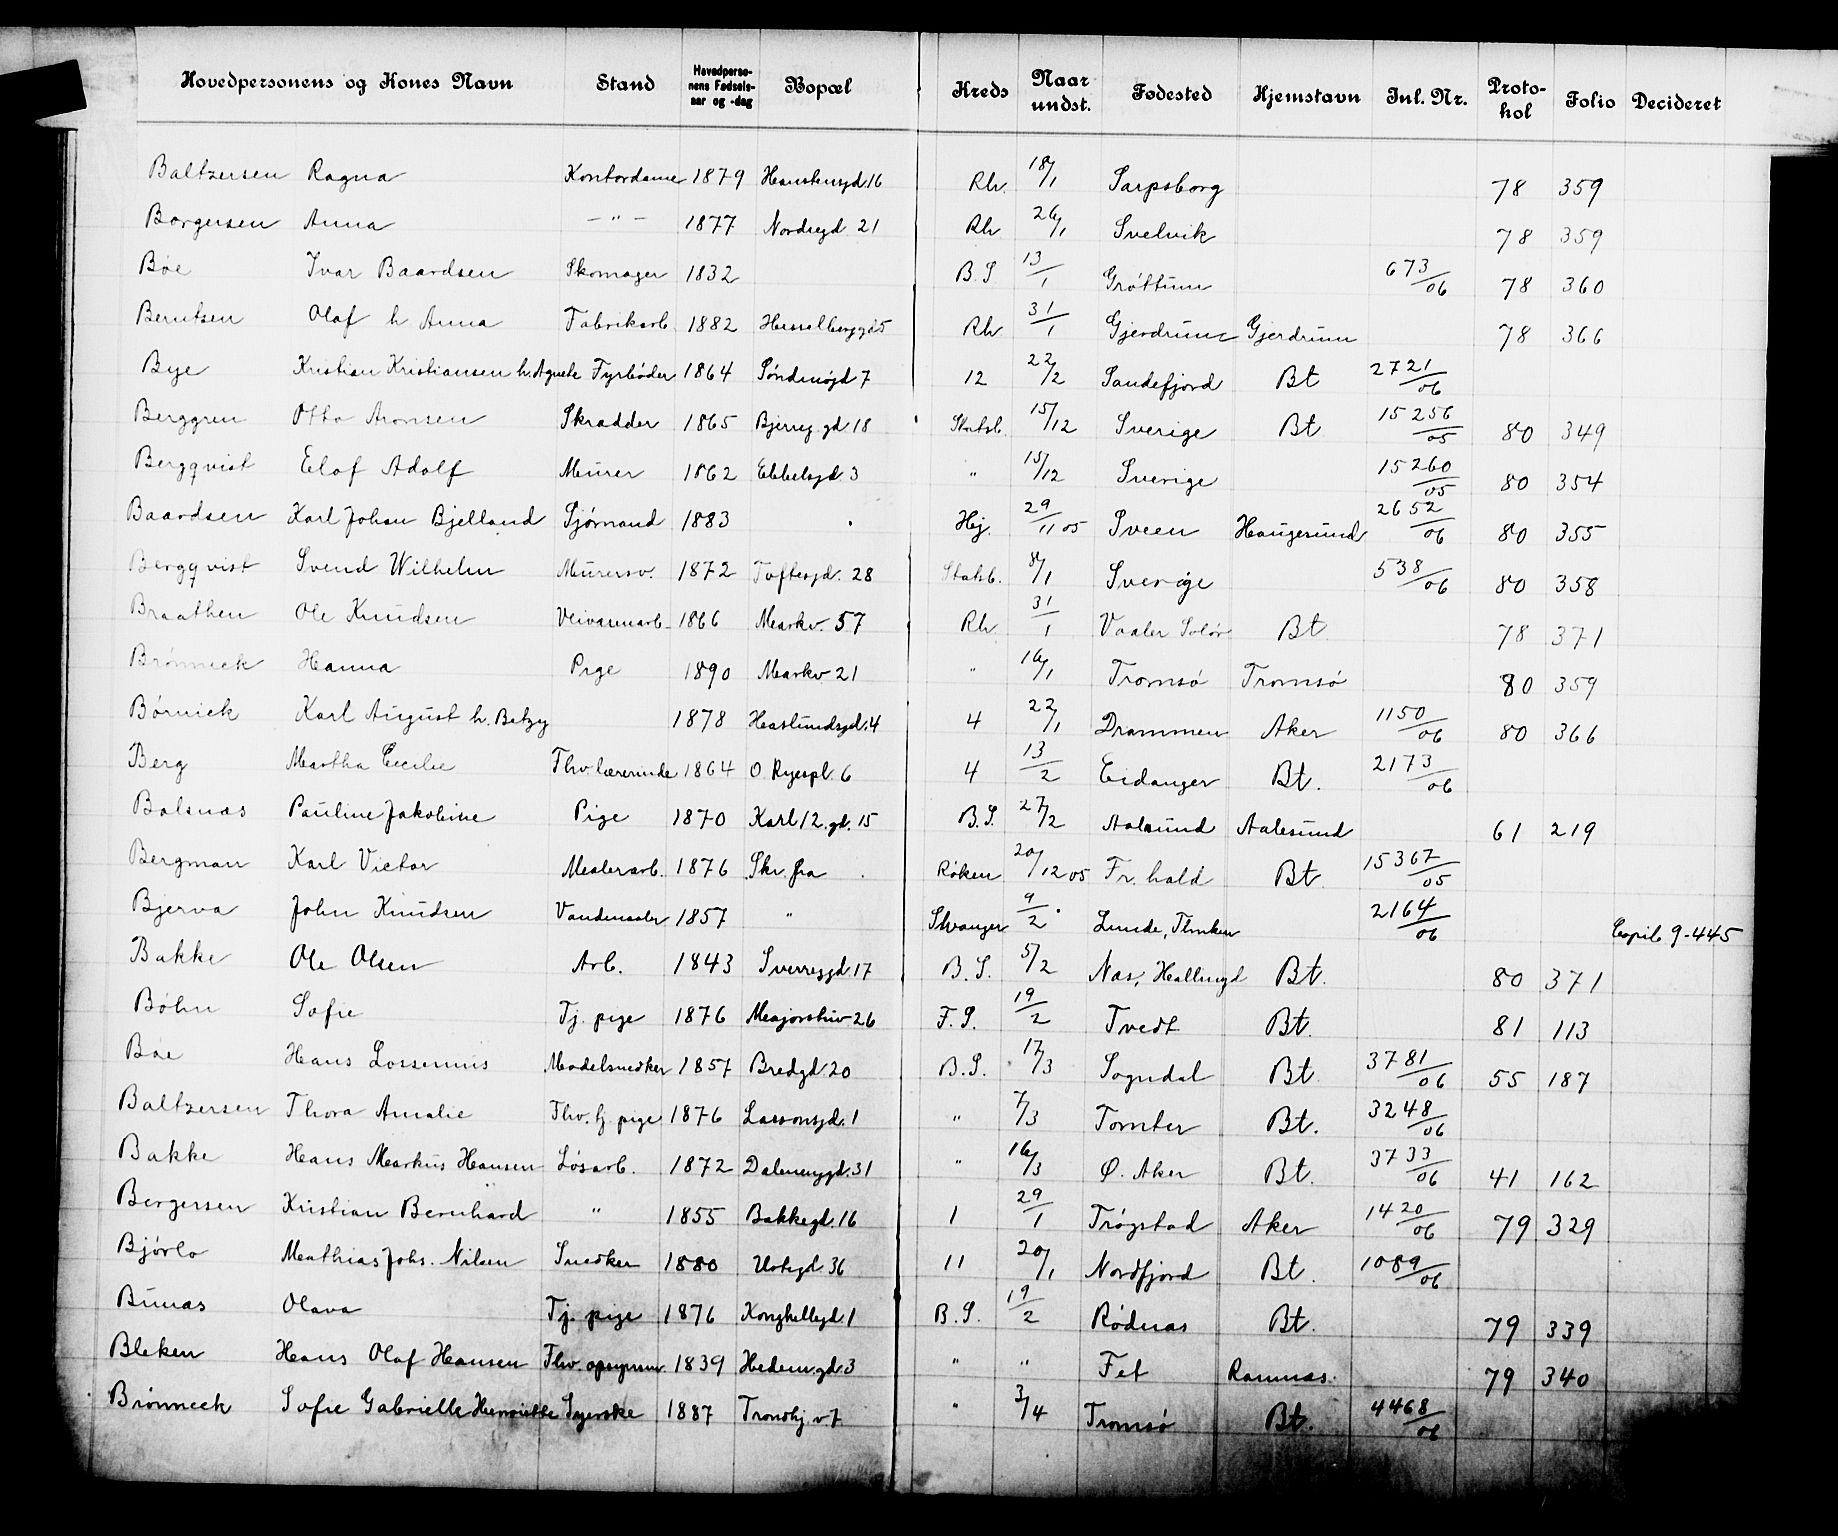 Hovedpersonens og Kones Navn Stand Hovedpersonens Fødselsaar og -dag Bopæl Kreds Naar undst. Fødested Hjemstavn Jnl. Nr. Protokol Folio Decideret
Baltzersen Ragna Kontordame 1879 Haustensgd. 16 Rh. 18/1 Sarpsborg 78 359
Borgersen Anna — " — 1877 Nordregd 21 Rh 26/1 Svelvik 78 359
Bøe Ivar Baardsen Skomager 1832 B.S 13/1 Grøttum 673/06 78 360
Berntsen Olaf h Anna Fabrikarb. 1882 Hesselberggd 5 Rh 31/1 Gjerdrum Gjerdrum 78 366
Bye Kristian Kristiansen h. Agnete Fyrbøder 1864 Søndmøgd 7 12 22/2 Sandefjord Bt 2721/06
Berggren Otto Aronsen Skrædder 1865 Bjerreg.gd. 18 Statsb. 15/12 Sverige Bt 15256/05 80 349
Bergqvist Elof Adolf Murer 1862 Ebbelsgd. 3 " 15/12 Sverige 15260/05 80 354
Baardsen Karl Johan Bjelland Sjømand 1883 Hej. 29/11 05 Sveen Haugesund 2652/06 80 355
Bergqvist Svend Wilhelm Murersv. 1872 Toftesgd. 28 Statsb. 8/1 Sverige 538/06 80 358
Braathen Ole Knudsen Veivæsenarb. 1866 Markv. 57 Rh. 31/1 Vaaler Solør Bt 78 371
Brønneck Hanna Pige 1890 Markv 21 " 16/1 Tromsø Tromsø 80 359
Børnick Karl August h. Betzy 1878 Haslundsgd. 4 4 22/1 Drammen Aker 1150/06 80 366
Berg Martha Cecilie Fhv. lærerinde 1864 O Ryespl. 6 4 13/2 Eidanger Bt. 2173/06
Balsnæs Pauline Jakobine Pige 1870 Karl 12. gd. 15 B.S. 27/2 Aalesund Aalesund 61 219
Bergman Karl Victor Malerarb. 1876 Skr. fra Røken 20/12 05 Fr. hald Bt. 15367/05
Bjerva John Knudsen 1857 " Stvanger 9/2 Lunde, 2164/06 9-445
Bakke Ole Olsen Arb. 1843 Sverresgd. 17 B.S. 5/2 Næs, Hallingd Bt. 80 371
Bøhn Sofie Tj. pige 1876 Majorstuv 26 F.S. 19/2 Tvedt Bt. 81 113
Bøe Hans Lossennis Modelsnedker 1857 Bredgd. 20 B.S. 17/3 Sogndal Bt. 3781/06 55 187
Baltzersen Thora Amalie Fhv. tj. pige 1876 Lassonsgd. 1 " 7/3 Tomter Bt. 3248/06
Bakke Hans Markus Hansen Løsarb. 1872 Dalenenggd. 31 " 16/3 Ø. Aker Bt. 3733/06 41 162
Bergersen Kristian Bernhard " 1855 Bakkegd. 16 1 29/1 Trøgstad Aker 1420/06 79 329
Bjørlo Mathias Johs. Nilsen Snedker 1880 Urtegd. 36 11 20/1 Nordfjord Bt. 1089/06
Bunæs Olava Tj. pige 1876 Konghellegd. 1 B.S. 19/2 Rødenæs Bt. 79 339
Bleken Hans Olaf Hansen Fhv. opsynsm 1839 Hedem.gd. 3 " " Fet Ramnæs. 79 340
Brønneck Sofie Gabrielle Henriette Syerske 1887 Trondhj.v 7 " 3/4 Tromsø Bt. 4468/06